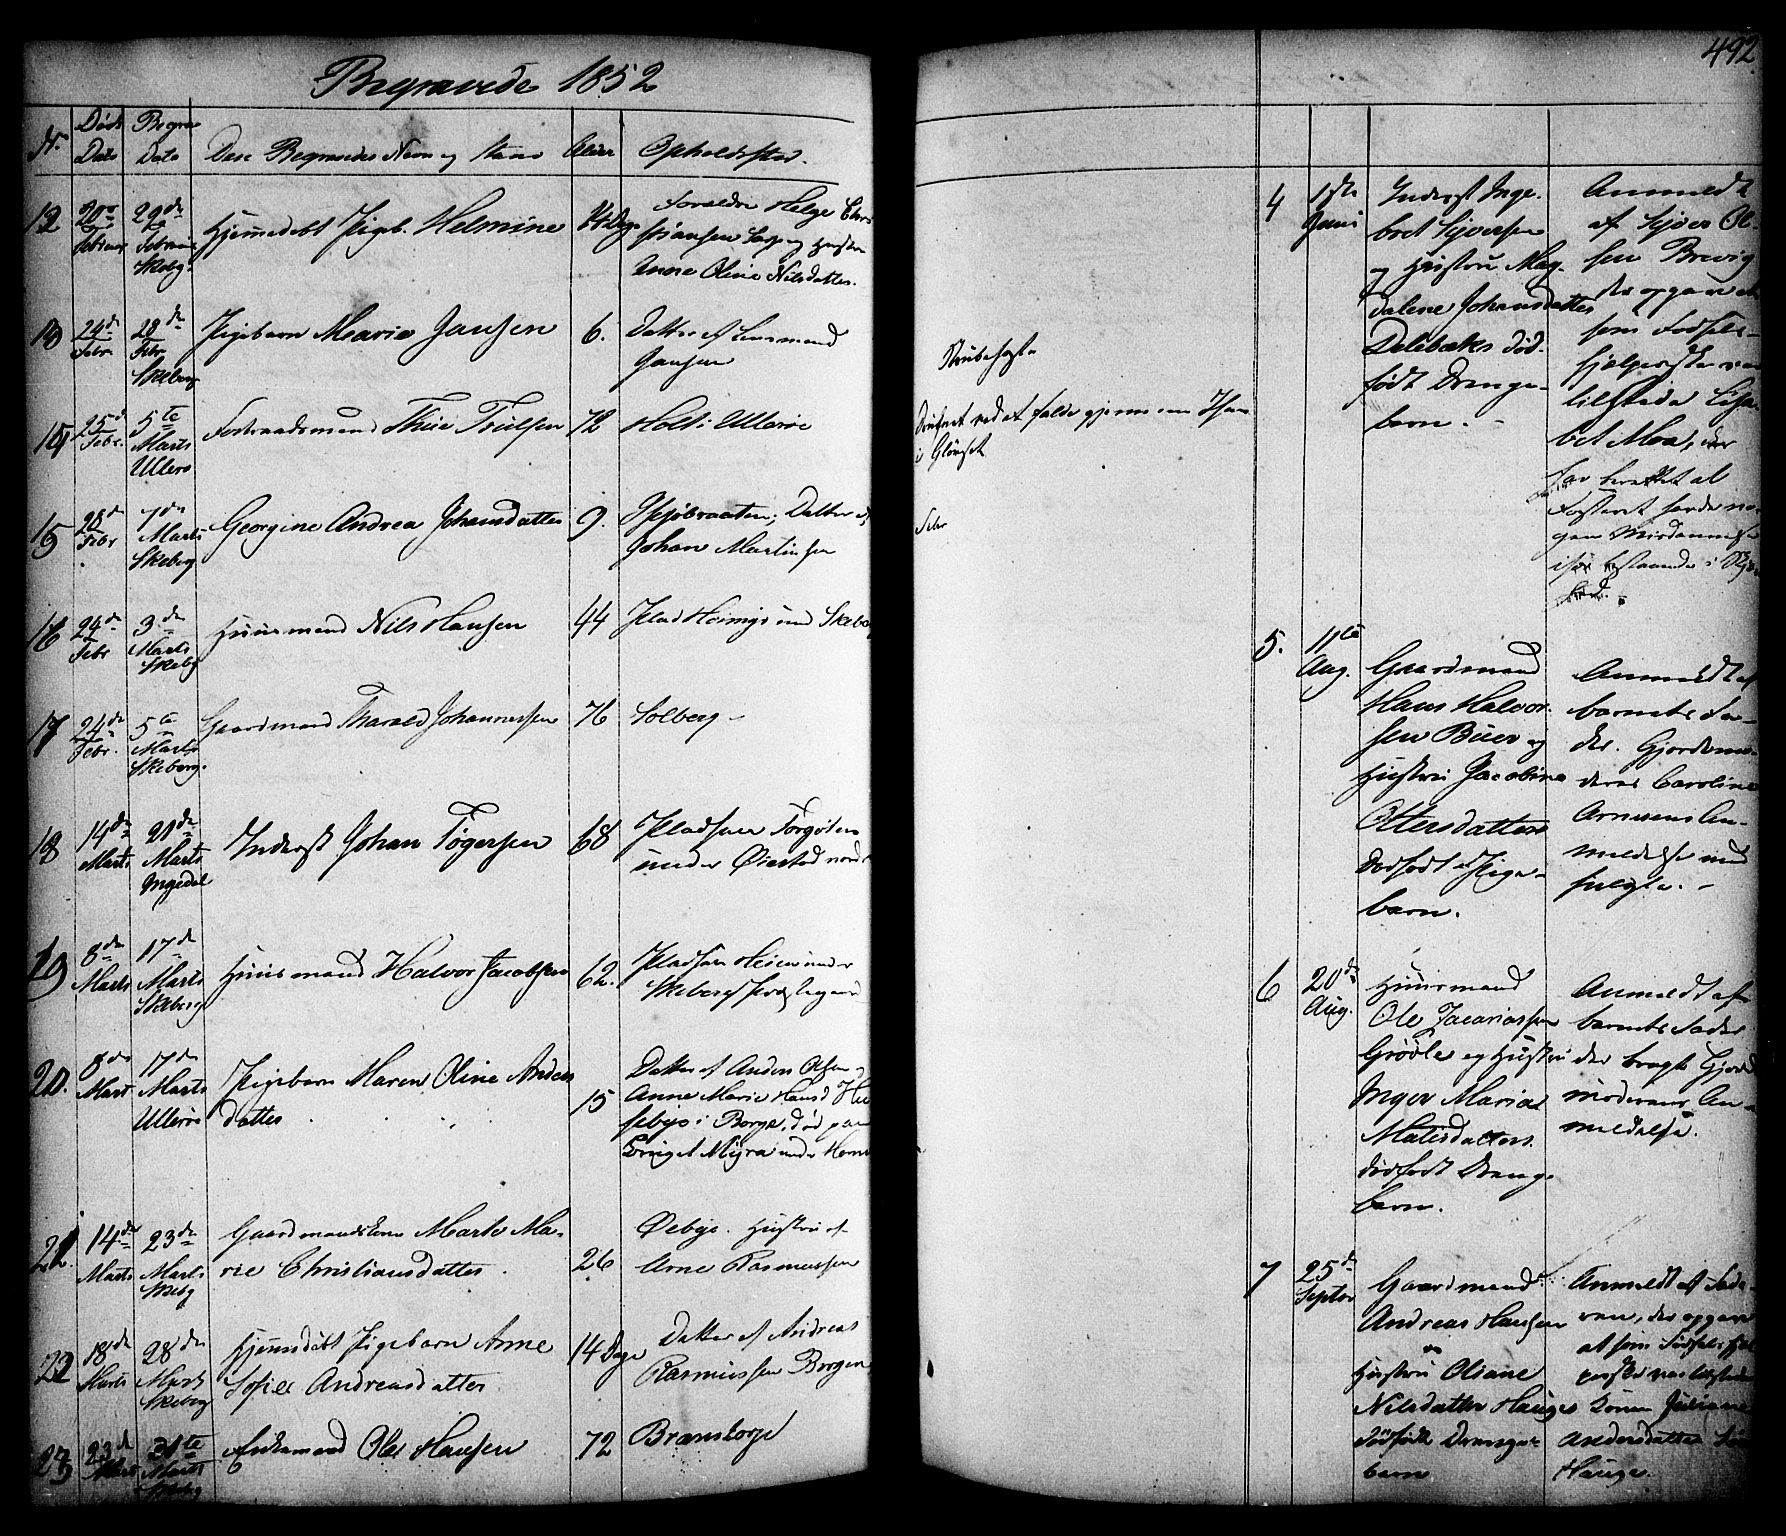 Begravede 1852
492
Nr.
Døds Dato
Begra Dato
Dese Begravedes Navn og Stand
Alder
Opholdssted.
12
20de Februar
29de Februar Skebg.
Hjemmedøbt Pigeb. Helmine
14 Dage
Foreldre Helge Chri
stiansen og Hustru
Anne Oline Nilsdatter.
13
24de Febr
28de Febr. Skeberg
Pigebarn Marie Jansen
6.
Datter af Lensmand
Jansen
Strubehoste
14
25d Febr.
5te Marts Ullerø
Forstraadsmand Thue Truelsen
72
Holt i Ullerøe
Druknet ved at falde gjennem Isen
i Glønget
15
28d Febr
7de Marts Skeberg
Georgine Andrea Johansdatter
9.
Datter af
Johan Martinsen
16
29de Febr
3de Marts Skeberg
Huusmand Nils Hansen
44
Plads und Skeberg
17
24de Febr.
5te Marts Skeberg.
Gaardmand Tharald Johannessen
76
Solberg –
18
14de Marts
21de Marts Ingedal
Inderst Johan Tøgersen
68
Pladsen
under Øiestad nordre
19
8de Marts
17de Marts Skeberg
Huusmand Halvor Jacobsen
62.
Pladsen under
Skeberg Prestegaard
20.
8de Mart
17de Marts Ullerøe
Pigebarn Maren Oline Anders
datter
15
Datter af Anders Olsen og
Anne Marie Hansd
i Borge, død paa
Myra under
21.
14de Marts
23de Marts Skebg
Gaardmandskone Marte Ma-
rie Christiansdatter.
26
Øebye. Hustru af
Arne Rasmussen
22
18de Marts
28de Marts Skeberg
Hjemdøbt Pigebarn Anne
Sofie Andreasdatter
14 Dage
Datter af Andreas
Rasmussen Borgen
23
23d Marts
31te Marts Skebg
Enkemand Ole Hansen
72
Branstorp
4
1ste Juni
Inderst Inge-
bret Sjversen
og Hustru Mag-
dalene Johansdatter
Delebæks død-
født Drenge-
barn. –
Anmeldt
af Sjver Ol-
sen Brevig
der opgav at
som Fødsels-
hjelperske var
tilstede Lisa-
bet Moa, der
har berettet at
Fosteret havde no-
gen Misdannelse
bestaaende i
5.
11te Aug.
Gaardmand
Hans Halvor-
sen Buer og
Hustru Jacobine
Ottersdatters
dødfødt Pige-
barn.
Anmeldt af
barnets Fa-
der. Gjordemo-
deres Caroline
Arnesens An-
meldelse med-
fulgte. –
6
20de Aug.
Huusmand
Ole Zacariassen
Grødle og Hustru
Inger Marie
Matisdatters
dødfødt Drenge-
barn.
Anmeldt af
barnets Fader
der bragte Gjorde-
moderens An-
meldelse.
7
25de Septbr
Gaardmand
Andreas Hansen
Hustru Oliane
Nilsdatter Hauges
dødfødte Drenge-
barn
Anmeldt af Fade-
ren, der opgav
at som Fødselshjel-
perske var tilstede
Konen Juliane
Andersdatter
Hauge.